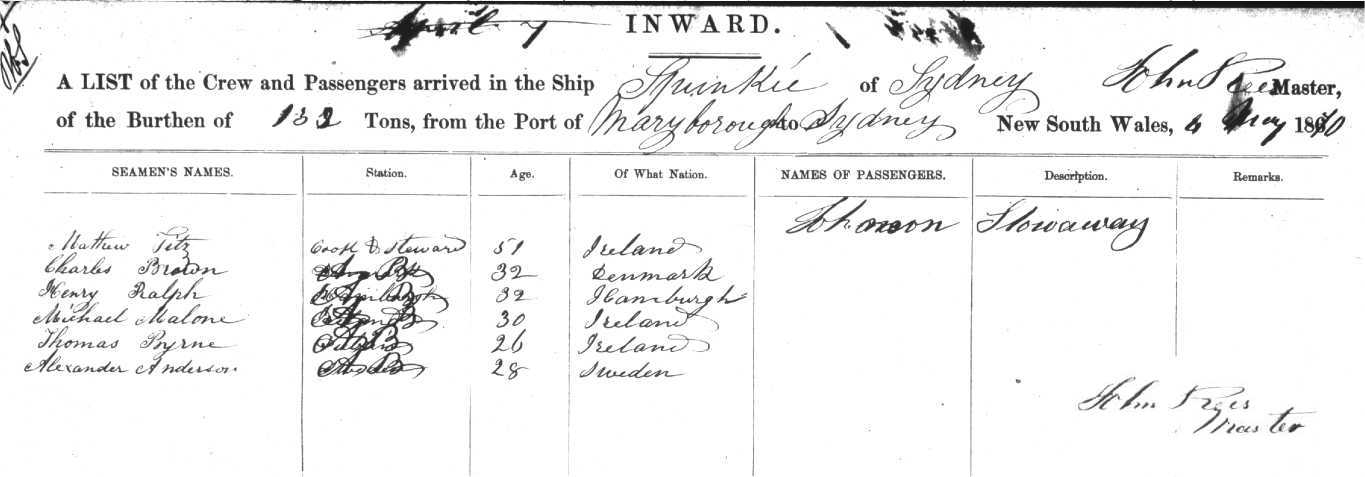 INWARD.
A LIST of the Crew and Passengers arrived in the Ship Spunkie of Sydney John Rees Master,
of the Burthen of 132 Tons, from the Port of Maryborough to Sydney New South Wales, 4 May 1870
SEAMEN'S NAMES. Station. Age. Of What Nation. NAMES OF PASSENGERS. Description. Remarks.
Johnson Stowaway
Mathew Fitz Cook & Steward 51 Ireland
Charles Brown A B 32 Denmark
Henry Ralph A B 32 Hamburgh
Michael Malone A B 30 Ireland
Thomas Byrne A B 26 Ireland
Alexander Anderson A B 28 Sweden
John Rees
Master